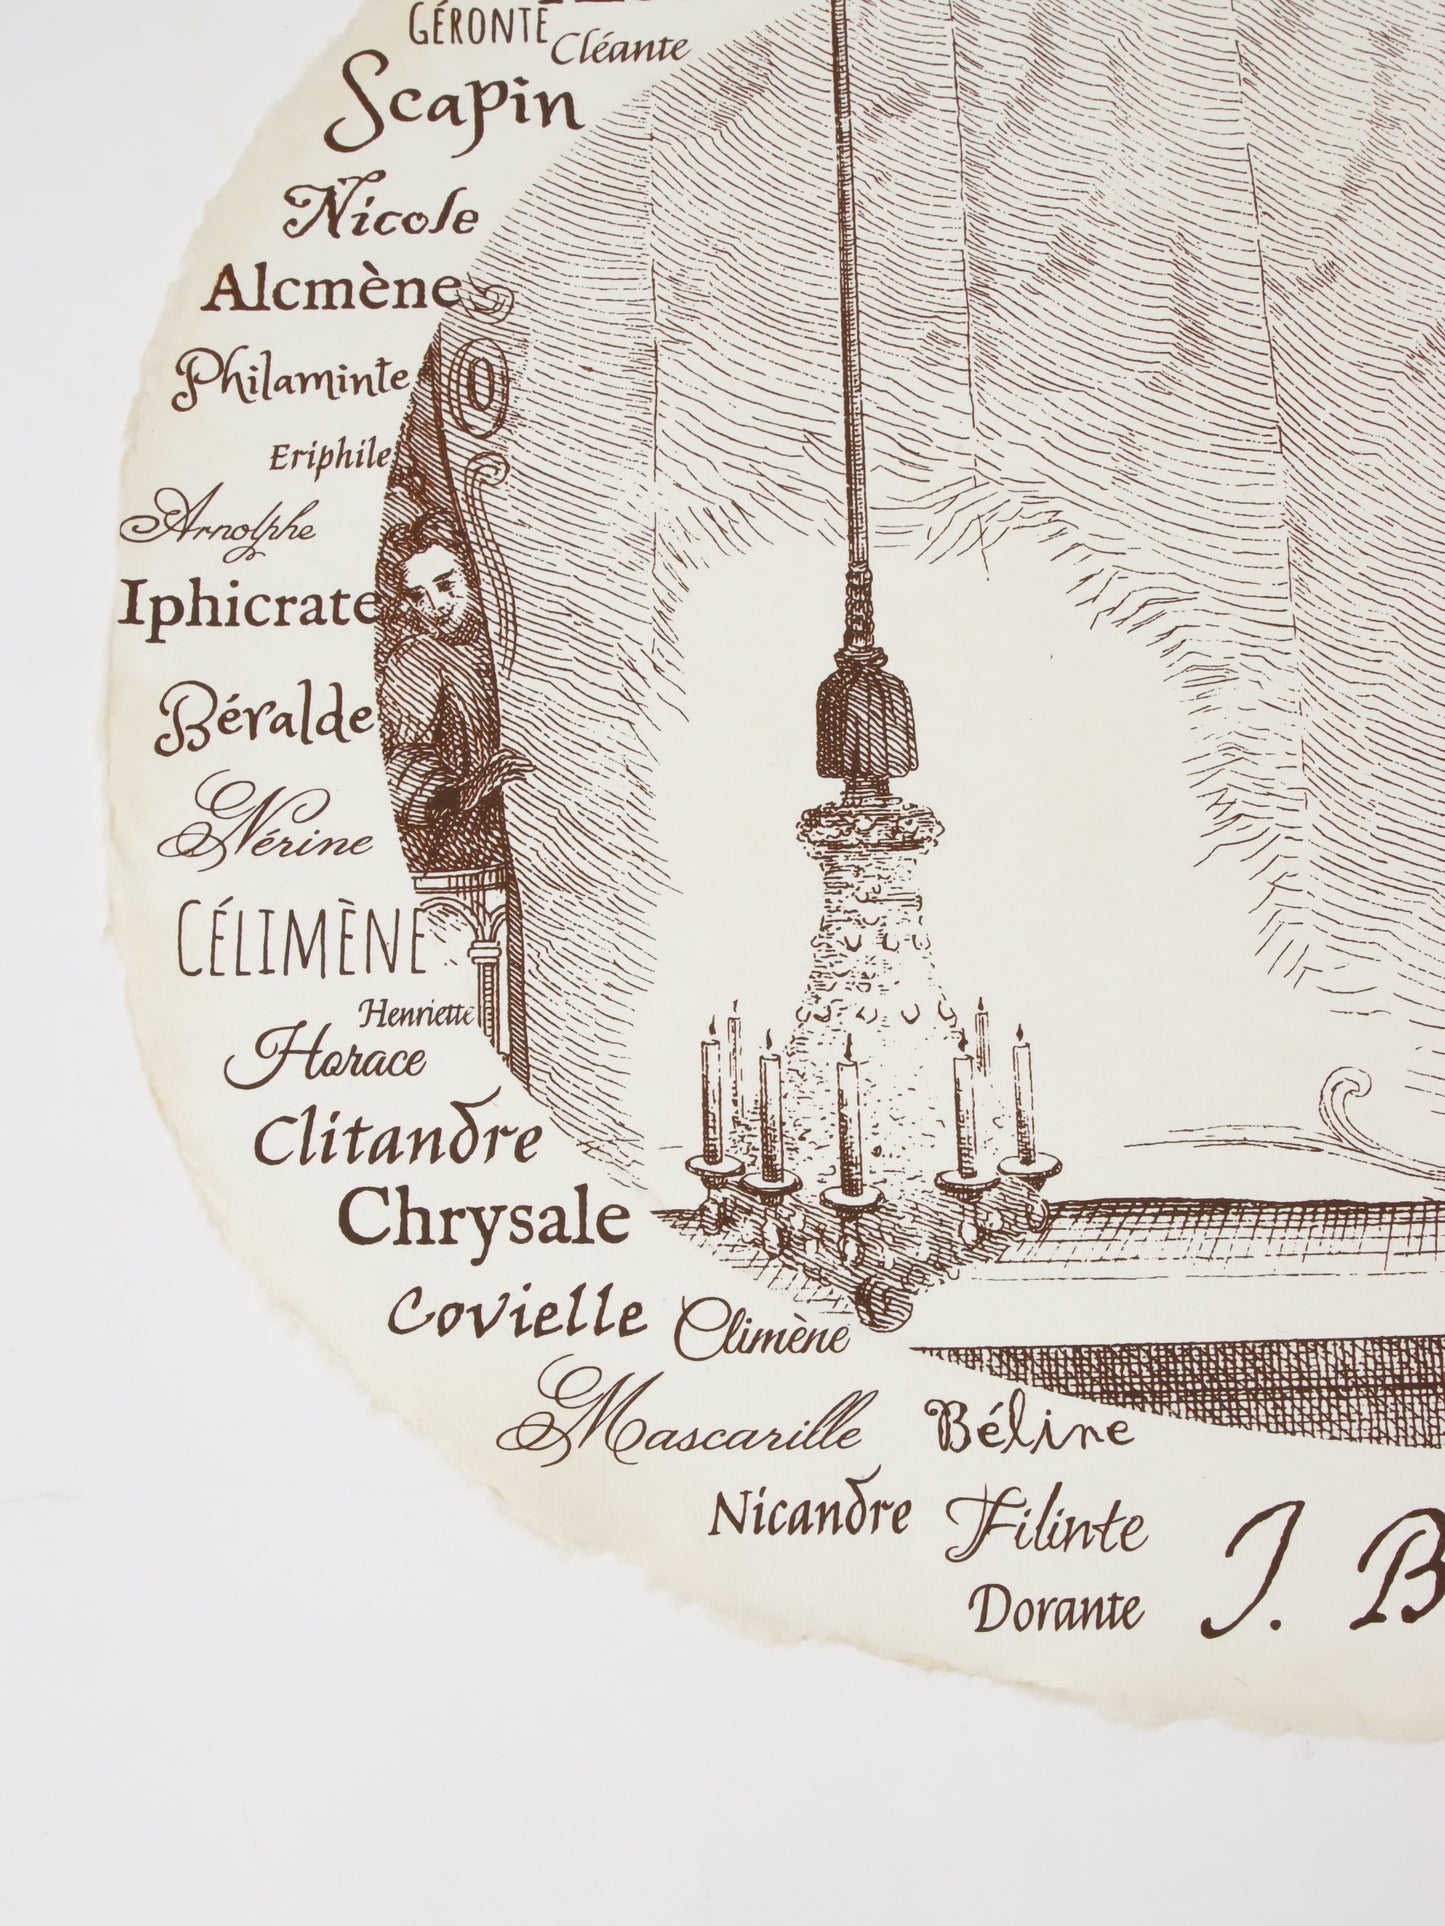 GÉRONTE
Cléante
Scapin
Nicole
Alcmène
Philaminte
Eriphile
Arnolphe
Iphicrate
Béralde
Nérine
CÉLIMÈNE
Henriette
Horace
Clitandre
Chrysale
Covielle Climène
Mascarille Béline
Nicandre Filinte
Dorante J. B